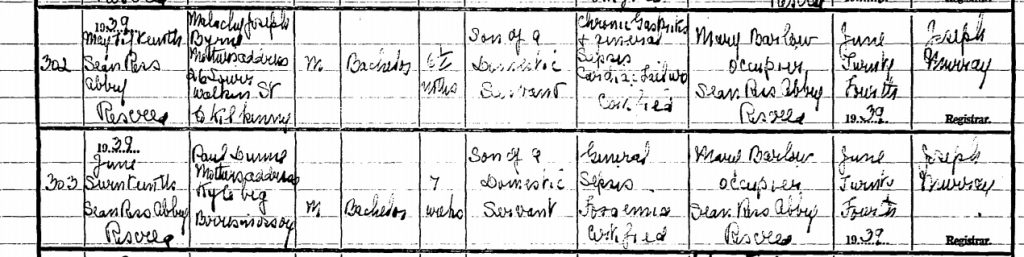 302
1939
May
Sean Ross
Abbey
Roscrea
Malachy Joseph
Byrne
Mothers address
Lower
Walkin St
Kilkenny
M
Bachelor
6½
mths
Son of a
Domestic
Servant
Chronic Gastritis
+ general
Sepsis
Cardiac Failure
Certified
Mary Barlow
occupier
Sean Ross Abbey
Roscrea
June
Twenty
Fourth
1939
Joseph
Murray
Registrar.
303
1939
June
Seventeenth
Sean Ross Abbey
Roscrea
Paul Dunne
Mothers address
Kylebeg
Borris in ossory
M
Bachelor
7
weeks
Son of a
Domestic
Servant
General
Sepsis
Toxaemia
Certified
Mary Barlow
occupier
Sean Ross Abbey
Roscrea
June
Twenty
Fourth
1939
Joseph
Murray
Registrar.